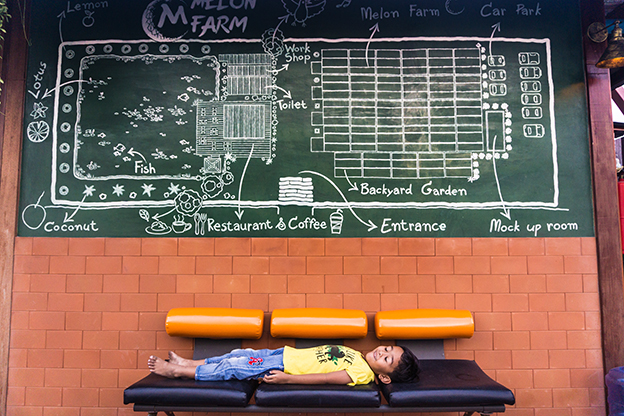 MELON
M FARM
Lemon
Melon Farm
Car Park
Work
Shop
Lotus
Toilet
Fish
Backyard Garden
Coconut
Restaurant & Coffee
Entrance
Mock up room